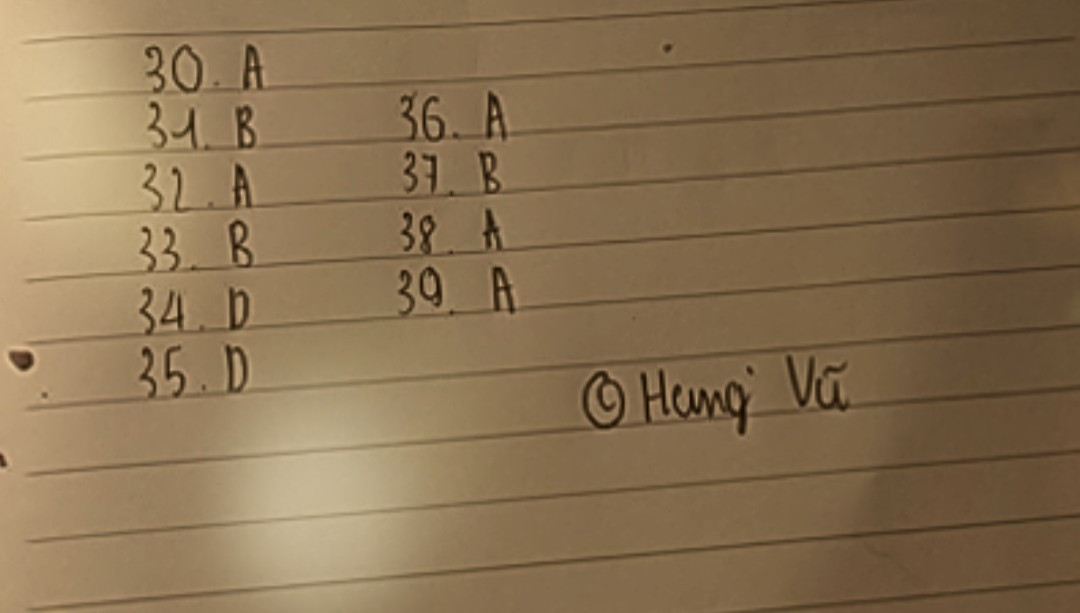 30. A
31. B
32. A
33. B
34. D
35. D
36. A
37. B
38. A
39. A
© Hưng Vũ